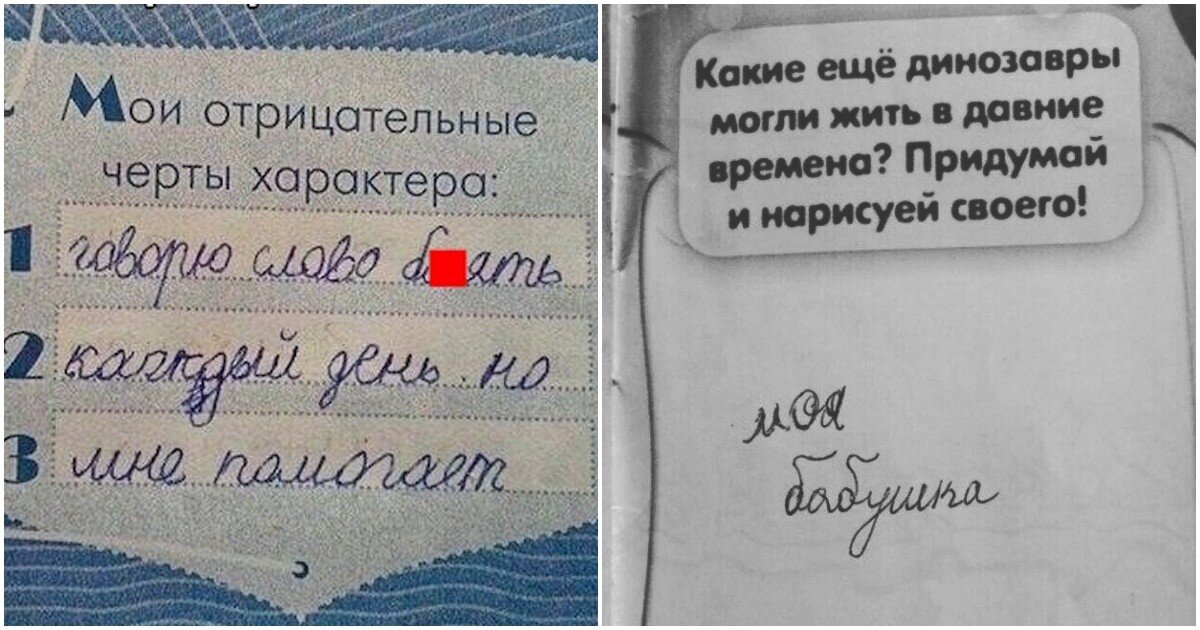 Мои отрицательные
черты характера:
1 говорю слово б ять
2 каждый день. но
3 мне помогает
Какие ещё динозавры
могли жить в давние
времена? Придумай
и нарисуей своего!
моя
бабушка